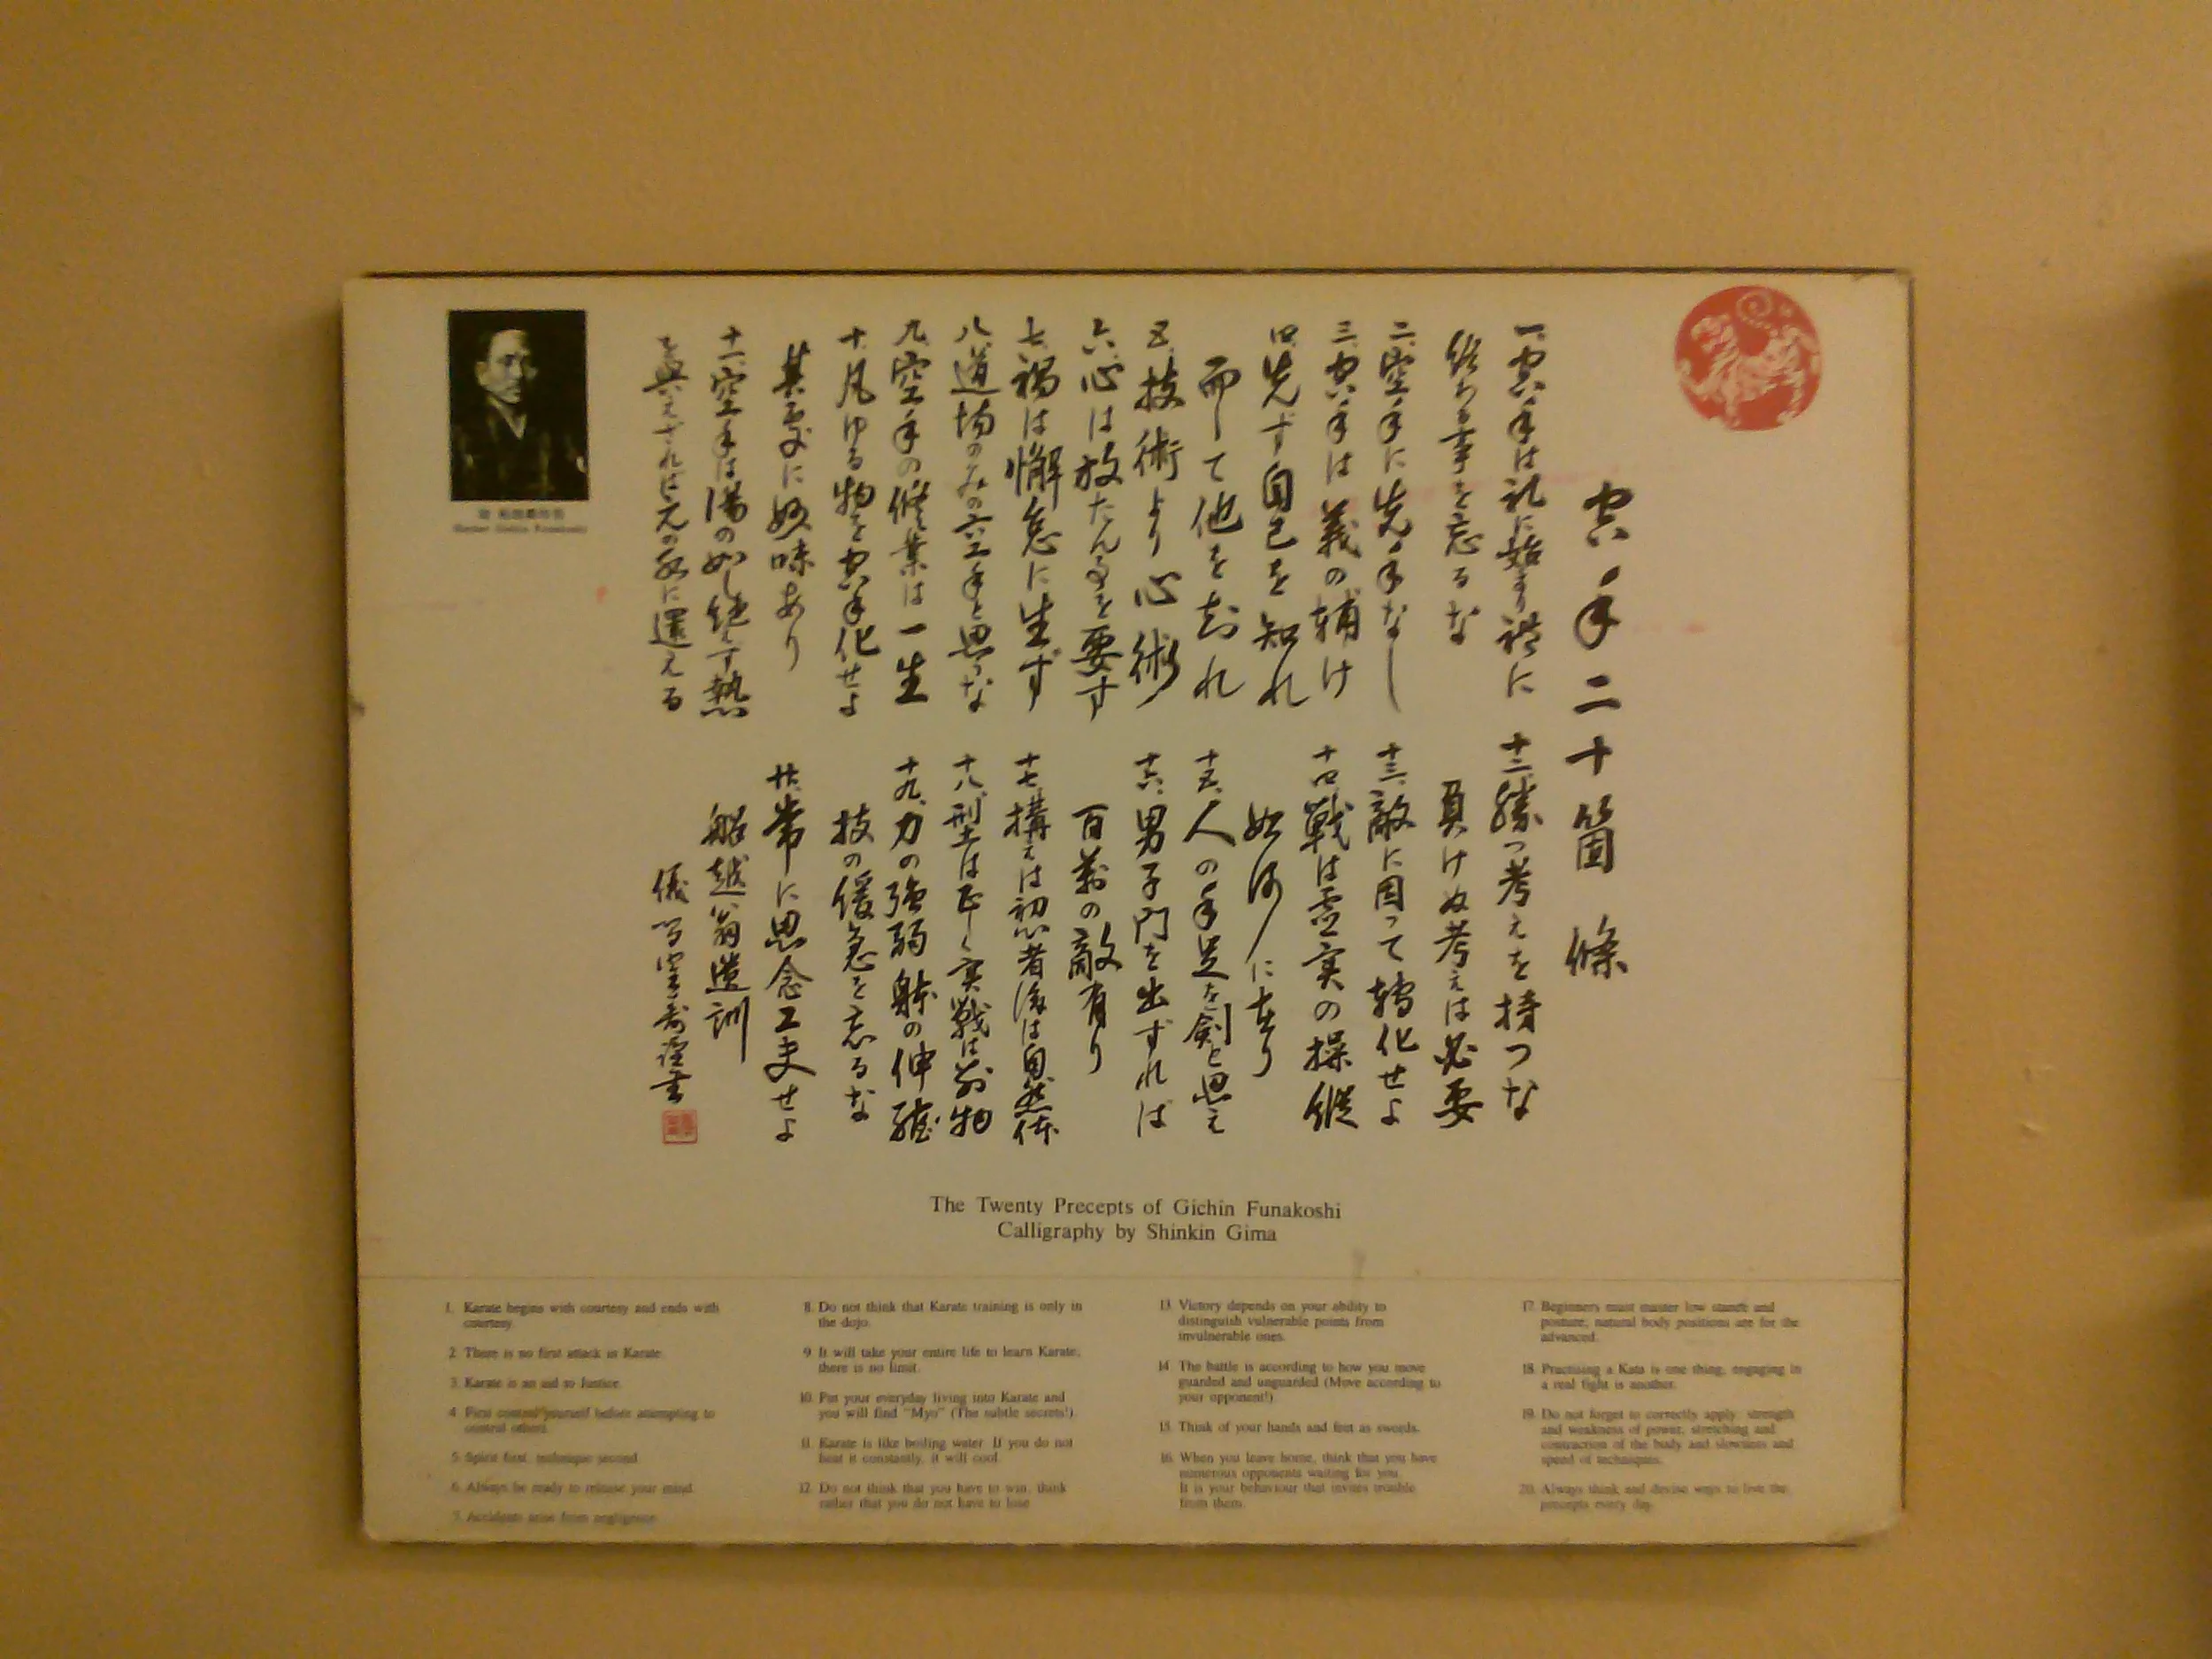 空手二十箇條
一、空手は礼に始まり禮に
終わる事を忘るな
二、空手に先手なし
三、空手は義の輔け
四、先ず自己を知れ
而して他を知れ
五、技術より心術
六、心は放たん事を要す
七、禍は懈怠に生ず
八、道場のみの空手と思うな
九、空手の修業は一生
十、凡ゆる物を空手化せよ
其処に妙味あり
十一、空手は湯の如し絶えず熱
を與えざれば元の水に還える
十二、勝つ考えを持つな
負けぬ考えは必要
十三、敵に因って轉化せよ
十四、戦は虚実の操縦
如何に在り
十五、人の手足を剣と思え
十六、男子門を出ずれば
百萬の敵有り
十七、構えは初心者後は自然体
十八、型は正しく実戦は別物
十九、力の強弱躰の伸縮
技の緩急を忘るな
廿、常に思念工夫せよ
船越翁遺訓
The Twenty Precepts of Gichin Funakoshi
Calligraphy by Shinkin Gima
1. Karate begins with courtesy and ends with
courtesy.
2. There is no first attack in Karate.
3. Karate is an aid to Justice.
4. First control yourself before attempting to
control others.
5. Spirit first, technique second.
6. Always be ready to release your mind.
7. Accidents arise from negligence.
8. Do not think that Karate training is only in
the dojo.
9. It will take your entire life to learn Karate,
there is no limit.
10. Put your everyday living into Karate and
you will find "Myo" (The subtle secrets!).
11. Karate is like boiling water. If you do not
heat it constantly, it will cool.
12. Do not think that you have to win, think
rather that you do not have to lose.
13. Victory depends on your ability to
distinguish vulnerable points from
invulnerable ones.
14. The battle is according to how you move
guarded and unguarded (Move according to
your opponent!).
15. Think of your hands and feet as swords.
16. When you leave home, think that you have
numerous opponents waiting for you.
It is your behaviour that invites trouble
from them.
17. Beginners must master low stance and
posture, natural body positions are for the
advanced.
18. Practising a Kata is one thing, engaging in
a real fight is another.
19. Do not forget to correctly apply: strength
and weakness of power, stretching and
contraction of the body and slowness and
speed of techniques.
20. Always think and devise ways to live the
precepts every day.